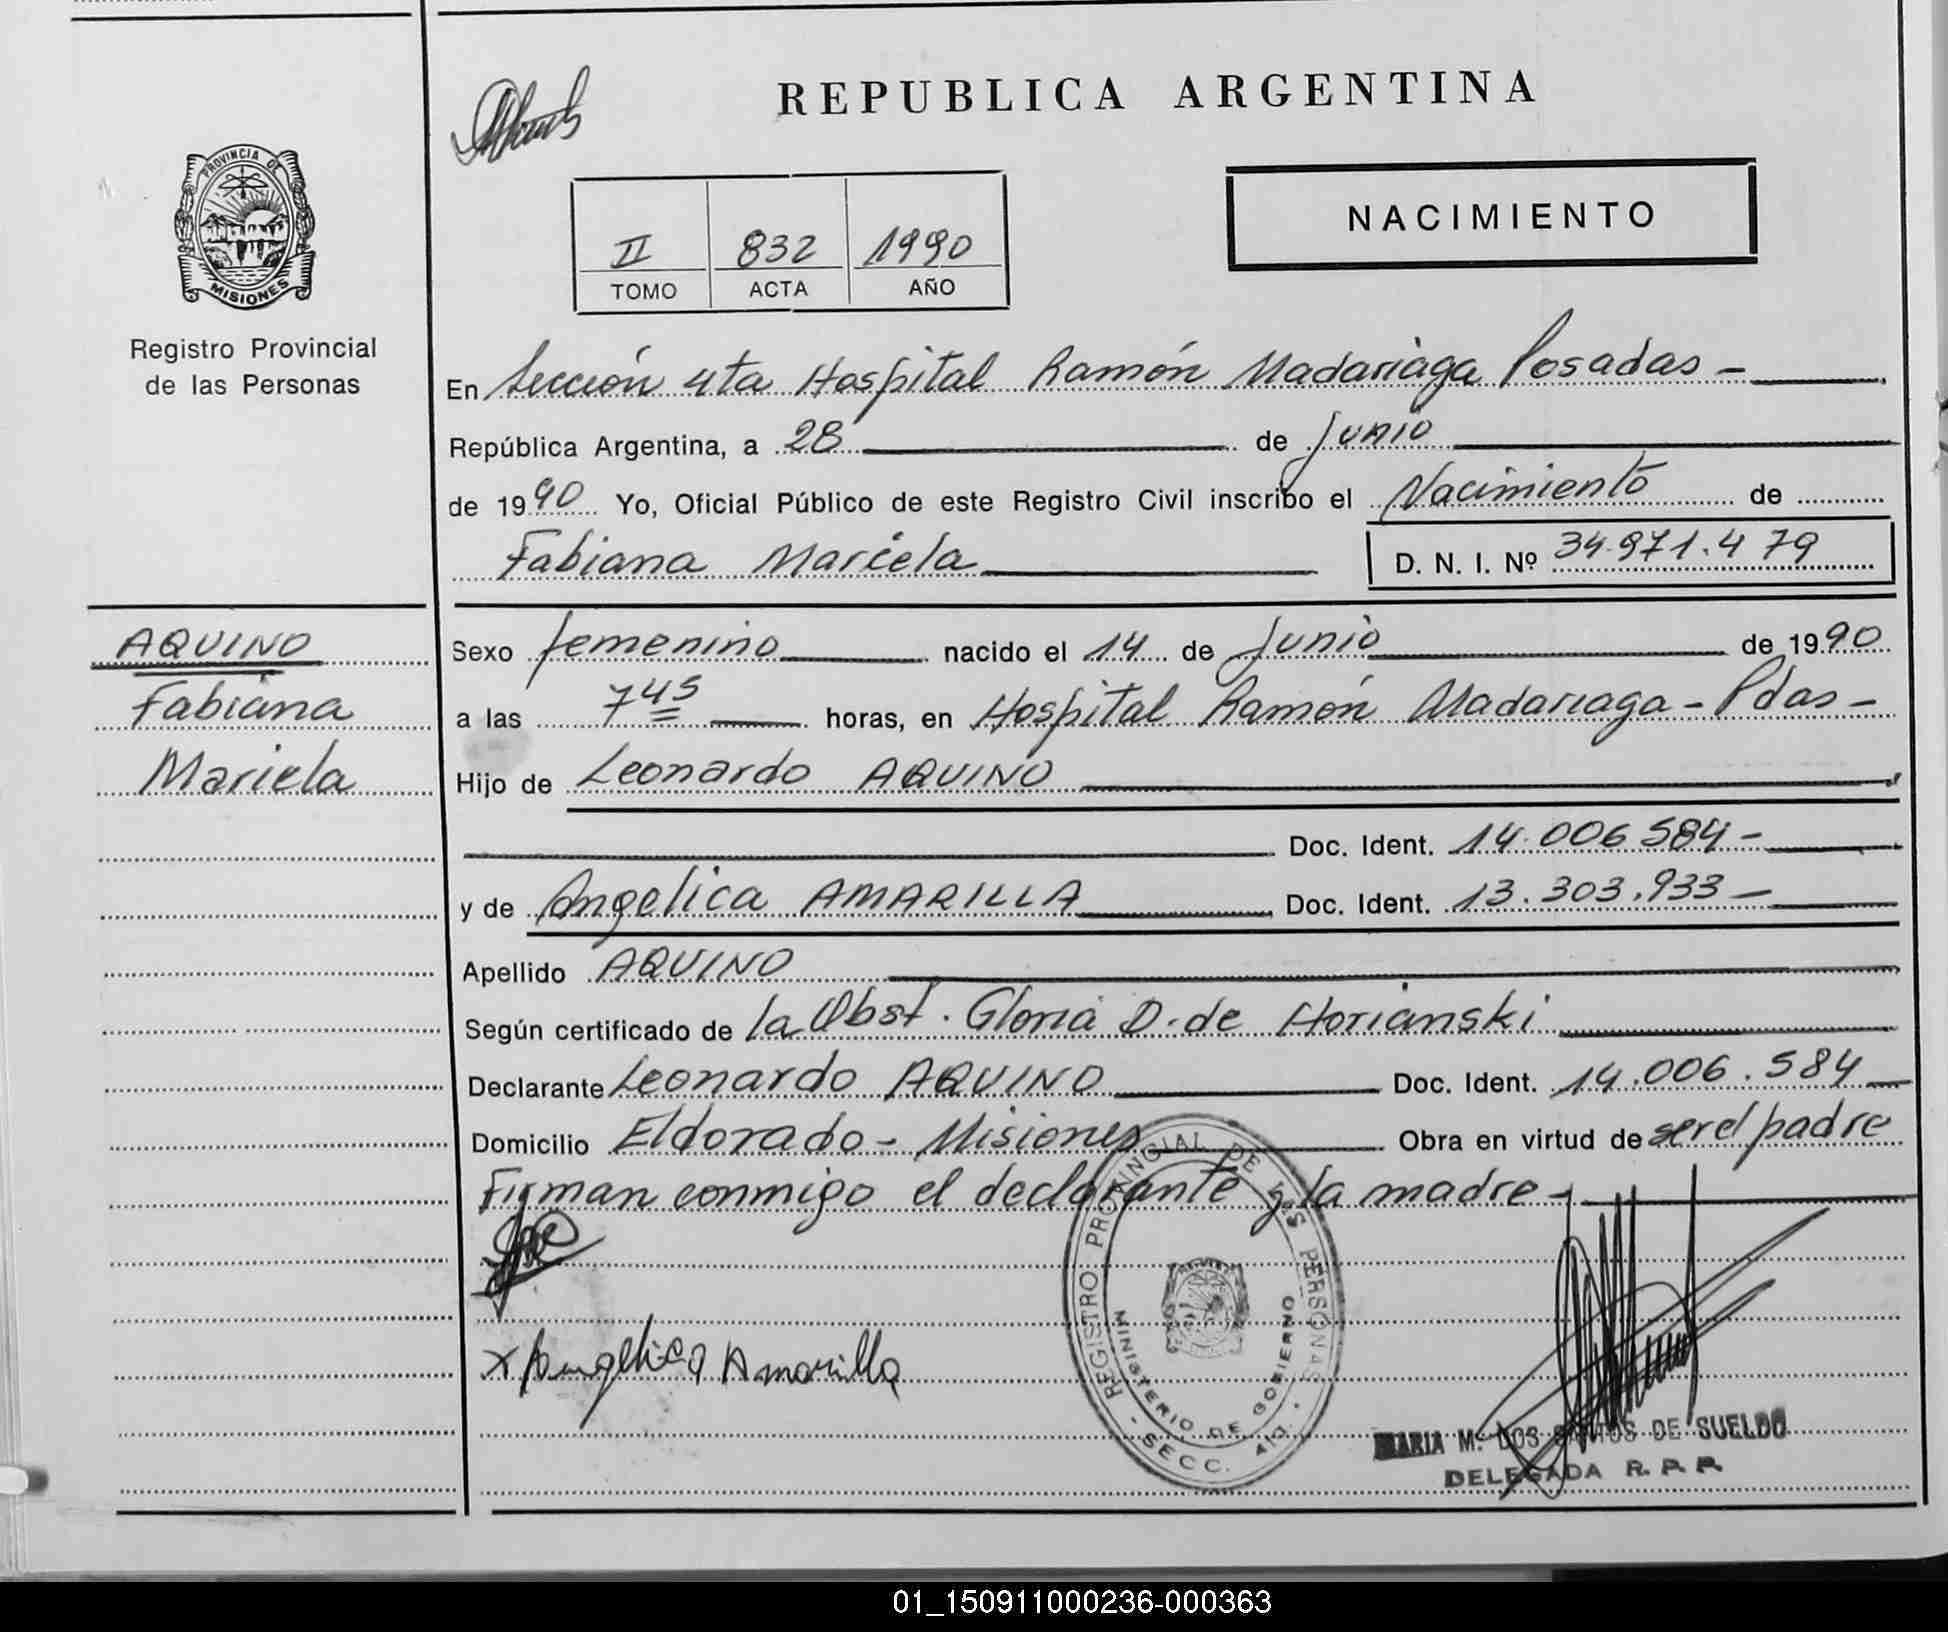 REPUBLICA ARGENTINA
PROVINCIA DE
MISIONES
Registro Provincial
de las Personas
NACIMIENTO
II 832 1990
TOMO ACTA AÑO
En Sección 4ta Hospital Ramón Madariaga Posadas -
República Argentina, a 28 de Junio
de 1990 Yo, Oficial Público de este Registro Civil inscribo el Nacimiento de
Fabiana Mariela D. N. I. Nº 34.971.479
AQUINO
Fabiana
Mariela
Sexo femenino nacido el 14 de Junio de 1990
a las 7 45 horas, en Hospital Ramón Madariaga - Pdas -
Hijo de Leonardo AQUINO
Doc. Ident. 14.006.584 -
y de Angelica AMARILLA Doc. Ident. 13.303.933 -
Apellido AQUINO
Según certificado de la Obst. Gloria D. de Horianski
Declarante Leonardo AQUINO Doc. Ident. 14.006.584
Domicilio Eldorado - Misiones Obra en virtud de ser el padre
Firman conmigo el declarante y la madre -
x Angelica Amarilla
REGISTRO PROVINCIAL DE LAS PERSONAS
MINISTERIO DE GOBIERNO
- SECC. 4ta. -
MARIA M. DOS SANTOS DE SUELDO
DELEGADA R. P. P.
01_150911000236-000363